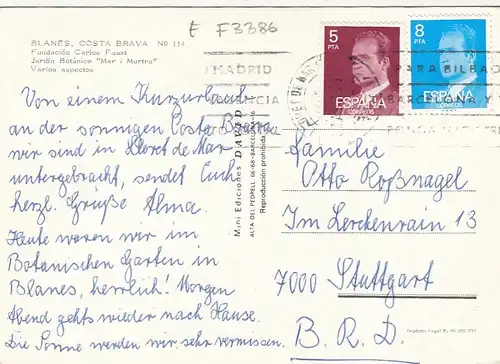 E F3386
BLANES, COSTA BRAVA Nº 114
Fundación Carlos Faust
Jardín Botánico "Mar i Murtra"
Varios aspectos
5
PTA
ESPAÑA
CORREOS
8
PTA
ESPAÑA
CORREOS
MADRID
PARA BILBAO
BARCELONA
Von einem Kurzurlaub
an der sonnigen Costa Brava
wir sind in Lloret de Mar
untergebracht, sendet Euch
herzl. Grüße Alma.
Heute waren wir im
Botanischen Garten in
Blanes, herrlich! Morgen
Abend gehts wieder nach Hause.
Die Sonne werden wir sehr vermissen.
Mini Ediciones DAVID
ALTA DEL PEDRELL, 66-68-BARCELONA-16
Reproducción prohibida
Familie
Otto Roßnagel
Im Lerchenrain 13
7000 Stuttgart
B. R. D.